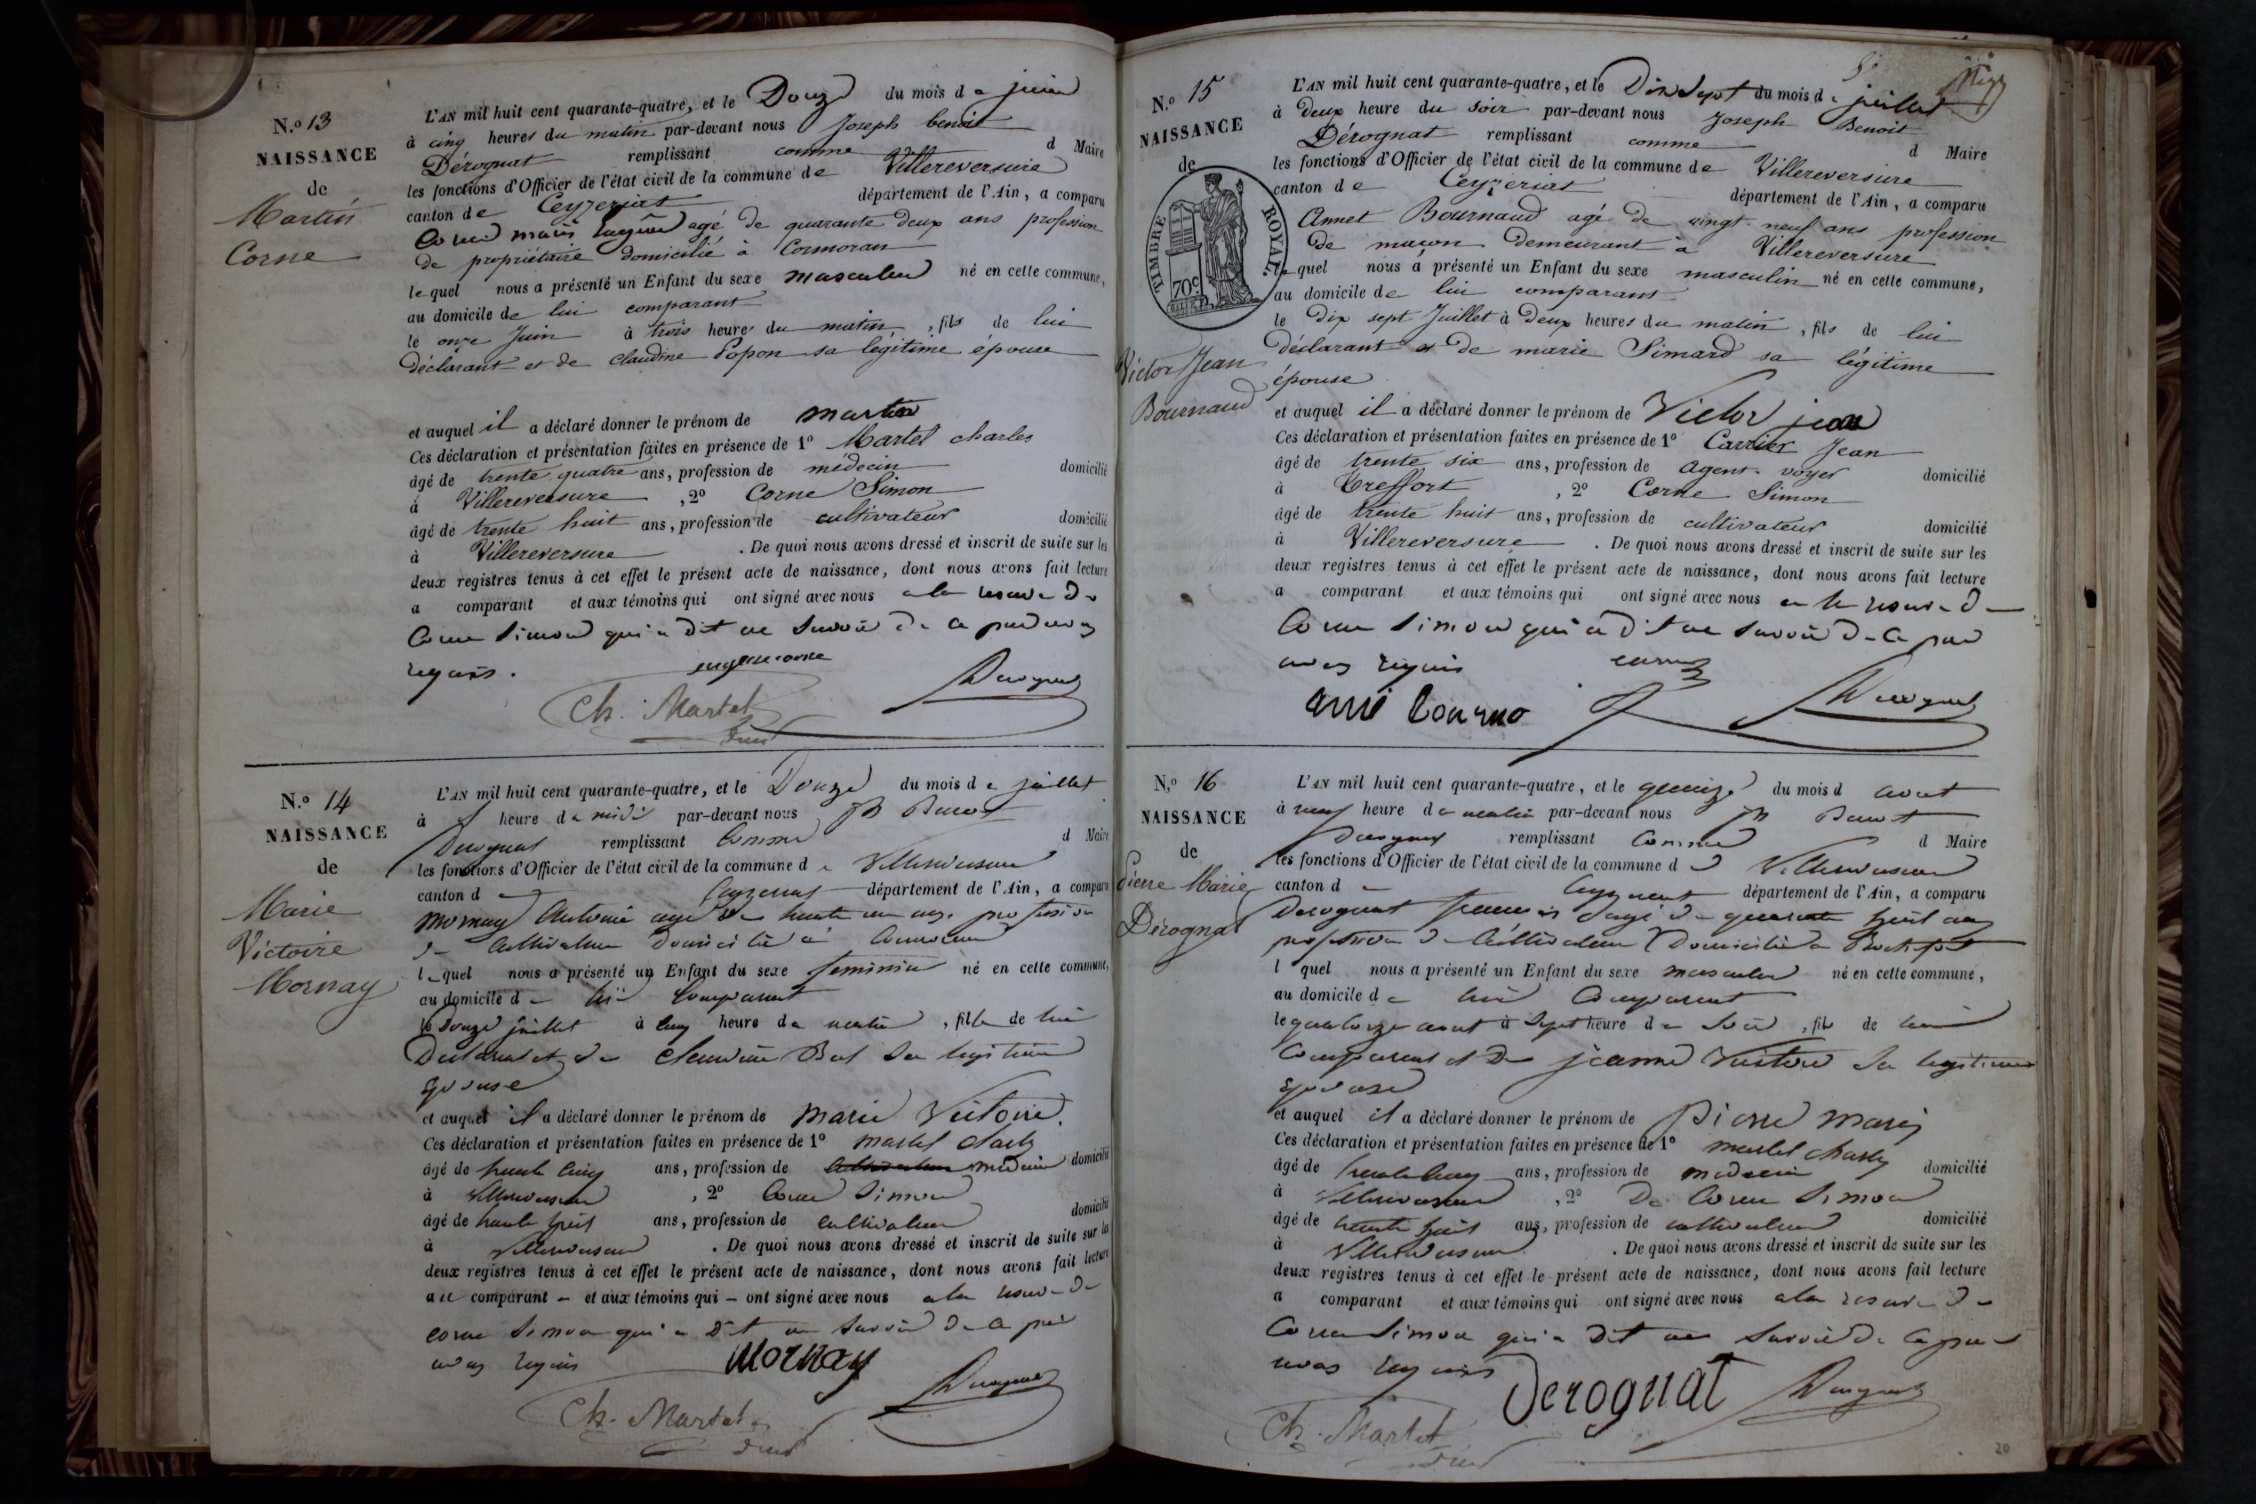 N.º 13
NAISSANCE
de
Martin
Corne
L'AN mil huit cent quarante-quatre, et le Douze du mois de juin
à cinq heures du matin par-devant nous Joseph benoit
Dérognat remplissant comme d Maire
les fonctions d'Officier de l'état civil de la commune de Villereversure
canton de Ceyzeriat département de l'Ain, a comparu
Corne marie agé de quarante deux ans profession
de propriétaire domicilié à Cormoran
lequel nous a présenté un Enfant du sexe masculin né en cette commune,
au domicile de lui comparant
le onze Juin à trois heures du matin, fils de lui
déclarant et de claudine Popon sa légitime épouse
et auquel il a déclaré donner le prénom de martin
Ces déclaration et présentation faites en présence de 1º Martel charles
âgé de trente quatre ans, profession de médecin domicilié
à Villereversure, 2º Corne Simon
âgé de trente huit ans, profession de cultivateur domicilié
à Villereversure. De quoi nous avons dressé et inscrit de suite sur les
deux registres tenus à cet effet le présent acte de naissance, dont nous avons fait lecture
a comparant et aux témoins qui ont signé avec nous a la reserve de
Corne Simon qui a dit ne savoir de ce par nous
requis.
Ch. Martel
Derognat
N.º 14
NAISSANCE
de
Marie
Victoire
Mornay
L'AN mil huit cent quarante-quatre, et le Douze du mois de juillet
à heure de midi par-devant nous JB Benoit
Derognat remplissant Comme d Maire
les fonctions d'Officier de l'état civil de la commune de Villereversure
canton de Ceyzeriat département de l'Ain, a comparu
mornay Antoine agé de trente un ans profession
de cultivateur domicilié à Cormoran
lequel nous a présenté un Enfant du sexe feminin né en cette commune,
au domicile de lui Comparant
le Douze juillet à cinq heure de matin, fille de lui
Declarant et de Claudine Bal sa legitime
Epouse
et auquel il a déclaré donner le prénom de marie Victoire.
Ces déclaration et présentation faites en présence de 1º martel charles
âgé de trente cinq ans, profession de cultivateur médecin domicilié
à Villereversure, 2º Corne Simon
âgé de trente huit ans, profession de cultivateur domicilié
à Villereversure. De quoi nous avons dressé et inscrit de suite sur les
deux registres tenus à cet effet le présent acte de naissance, dont nous avons fait lecture
au comparant – et aux témoins qui – ont signé avec nous a la reserve de
corne Simon qui a dit ne savoir de ce par
nous requis
Mornay
Ch. Martel
Derognat
N.º 15
NAISSANCE
de
TIMBRE ROYAL.
70c
Victor Jean
Bournaud
L'AN mil huit cent quarante-quatre, et le Dix Sept du mois de juillet
à deux heure du soir par-devant nous Joseph Benoit
Dérognat remplissant comme d Maire
les fonctions d'Officier de l'état civil de la commune de Villereversure
canton de Ceyzeriat département de l'Ain, a comparu
Annet Bournaud agé de vingt-neuf ans profession
de maçon demeurant à Villereversure
lequel nous a présenté un Enfant du sexe masculin né en cette commune,
au domicile de lui comparant
le dix sept Juillet à deux heures du matin, fils de lui
déclarant et de marie Simard sa légitime
épouse
et auquel il a déclaré donner le prénom de Victor jean
Ces déclaration et présentation faites en présence de 1º Carrier Jean
âgé de trente six ans, profession de agent-voyer domicilié
à Treffort, 2º Corne Simon
âgé de trente huit ans, profession de cultivateur domicilié
à Villereversure. De quoi nous avons dressé et inscrit de suite sur les
deux registres tenus à cet effet le présent acte de naissance, dont nous avons fait lecture
a comparant et aux témoins qui ont signé avec nous a la reserve de
Corne Simon qui a dit ne savoir de ce par
nous requis
Derognat
N.º 16
NAISSANCE
de
Pierre Marie
Dérognat
L'AN mil huit cent quarante-quatre, et le quinze du mois d aout
à neuf heure de matin par-devant nous JB Benoit
Derognat remplissant Comme d Maire
les fonctions d'Officier de l'état civil de la commune de Villereversure
canton de Ceyzeriat département de l'Ain, a comparu
Derognat francois agé de quarante huit ans
profession de Cultivateur Domicilié a Rochefort
l quel nous a présenté un Enfant du sexe masculin né en cette commune,
au domicile de lui Comparant
le quatorze aout à Sept heure de Soir, fils de lui
Comparant et De jeanne sa legitime
Epouse
et auquel il a déclaré donner le prénom de Pierre marie
Ces déclaration et présentation faites en présence de 1º martel charles
âgé de trente cinq ans, profession de médecin domicilié
à Villereversure, 2º De Corne Simon
âgé de trente huit ans, profession de cultivateur domicilié
à Villereversure. De quoi nous avons dressé et inscrit de suite sur les
deux registres tenus à cet effet le présent acte de naissance, dont nous avons fait lecture
a comparant et aux témoins qui ont signé avec nous a la reserve de
Corne Simon qui a dit ne savoir de ce par
nous requis
Derognat
Ch. Martel
Derognat
20